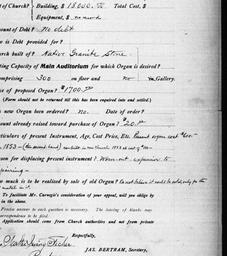 of Church? Building, $ 18,000.00 Total Cost, $
Equipment, $ no record
mount of Debt? No debt
ow is Debt provided for?
urch built of? Native Granite Stone
ting Capacity of Main Auditorium for which Organ is desired?
omprising 300 on floor and no in Gallery.
e of proposed Organ? $1700.00
(Form should not be returned till this has been required into and settled.)
new Organ been ordered? no. Date of order?
ount already raised toward purchase of Organ?
rticulars of present Instrument, Age, Cost Price, Etc. Present organ cost
1853
son for displacing present instrument? Worn out expensive to
repairing
w much is to be realized by sale of old Organ?
To facilitate Mr. Carnegie's consideration of your appeal, will you oblige by
in the above.
Precise answer to each question is necessary. The leaving of blanks may
correspondence to be filed.
Application should come from Church authorities and not from private
Respectfully,
JAS. BERTRAM, Secretary,